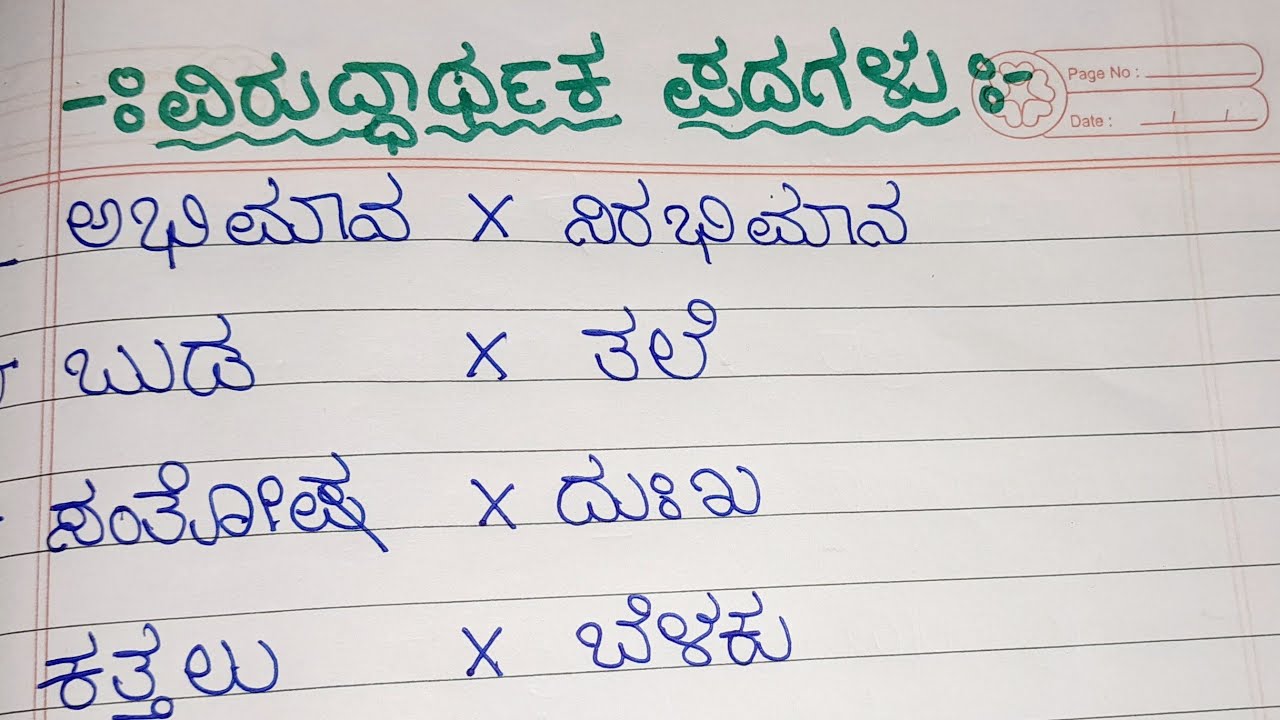 -ಃ ವಿರುದ್ಧಾರ್ಥಕ ಪದಗಳು ಃ-
Page No :
Date :
ಅಭಿಮಾವ X ನಿರಭಿಮಾನ
ಬುಡ X ತಲೆ
ಸಂತೋಷ X ದುಃಖ
ಕತ್ತಲು X ಬೆಳಕು